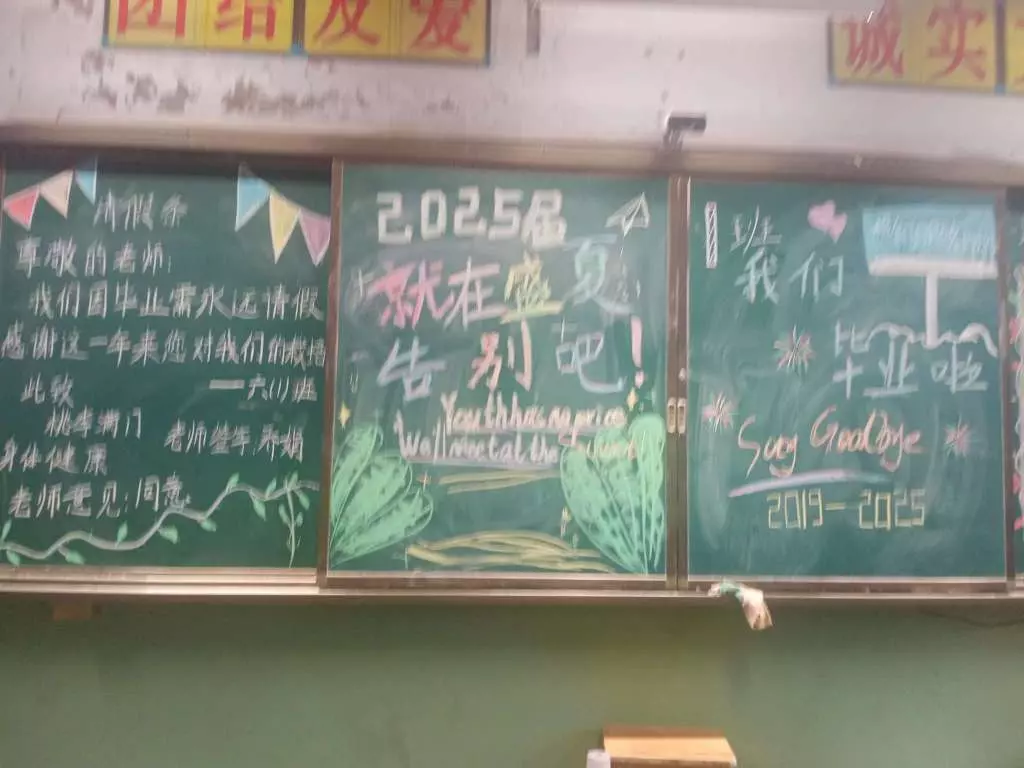 团结友爱
诚实
请假条
尊敬的老师:
我们因毕业需永远请假
感谢这一年来您对我们的栽培
此致
一六(1)班
桃李满门
身体健康
老师签字:乔娟
老师意见:同意
2025届
就在盛夏
告别吧!
Youth has no price
We'll meet at the
1班
我们
毕业啦
Say Goodbye
2019-2025